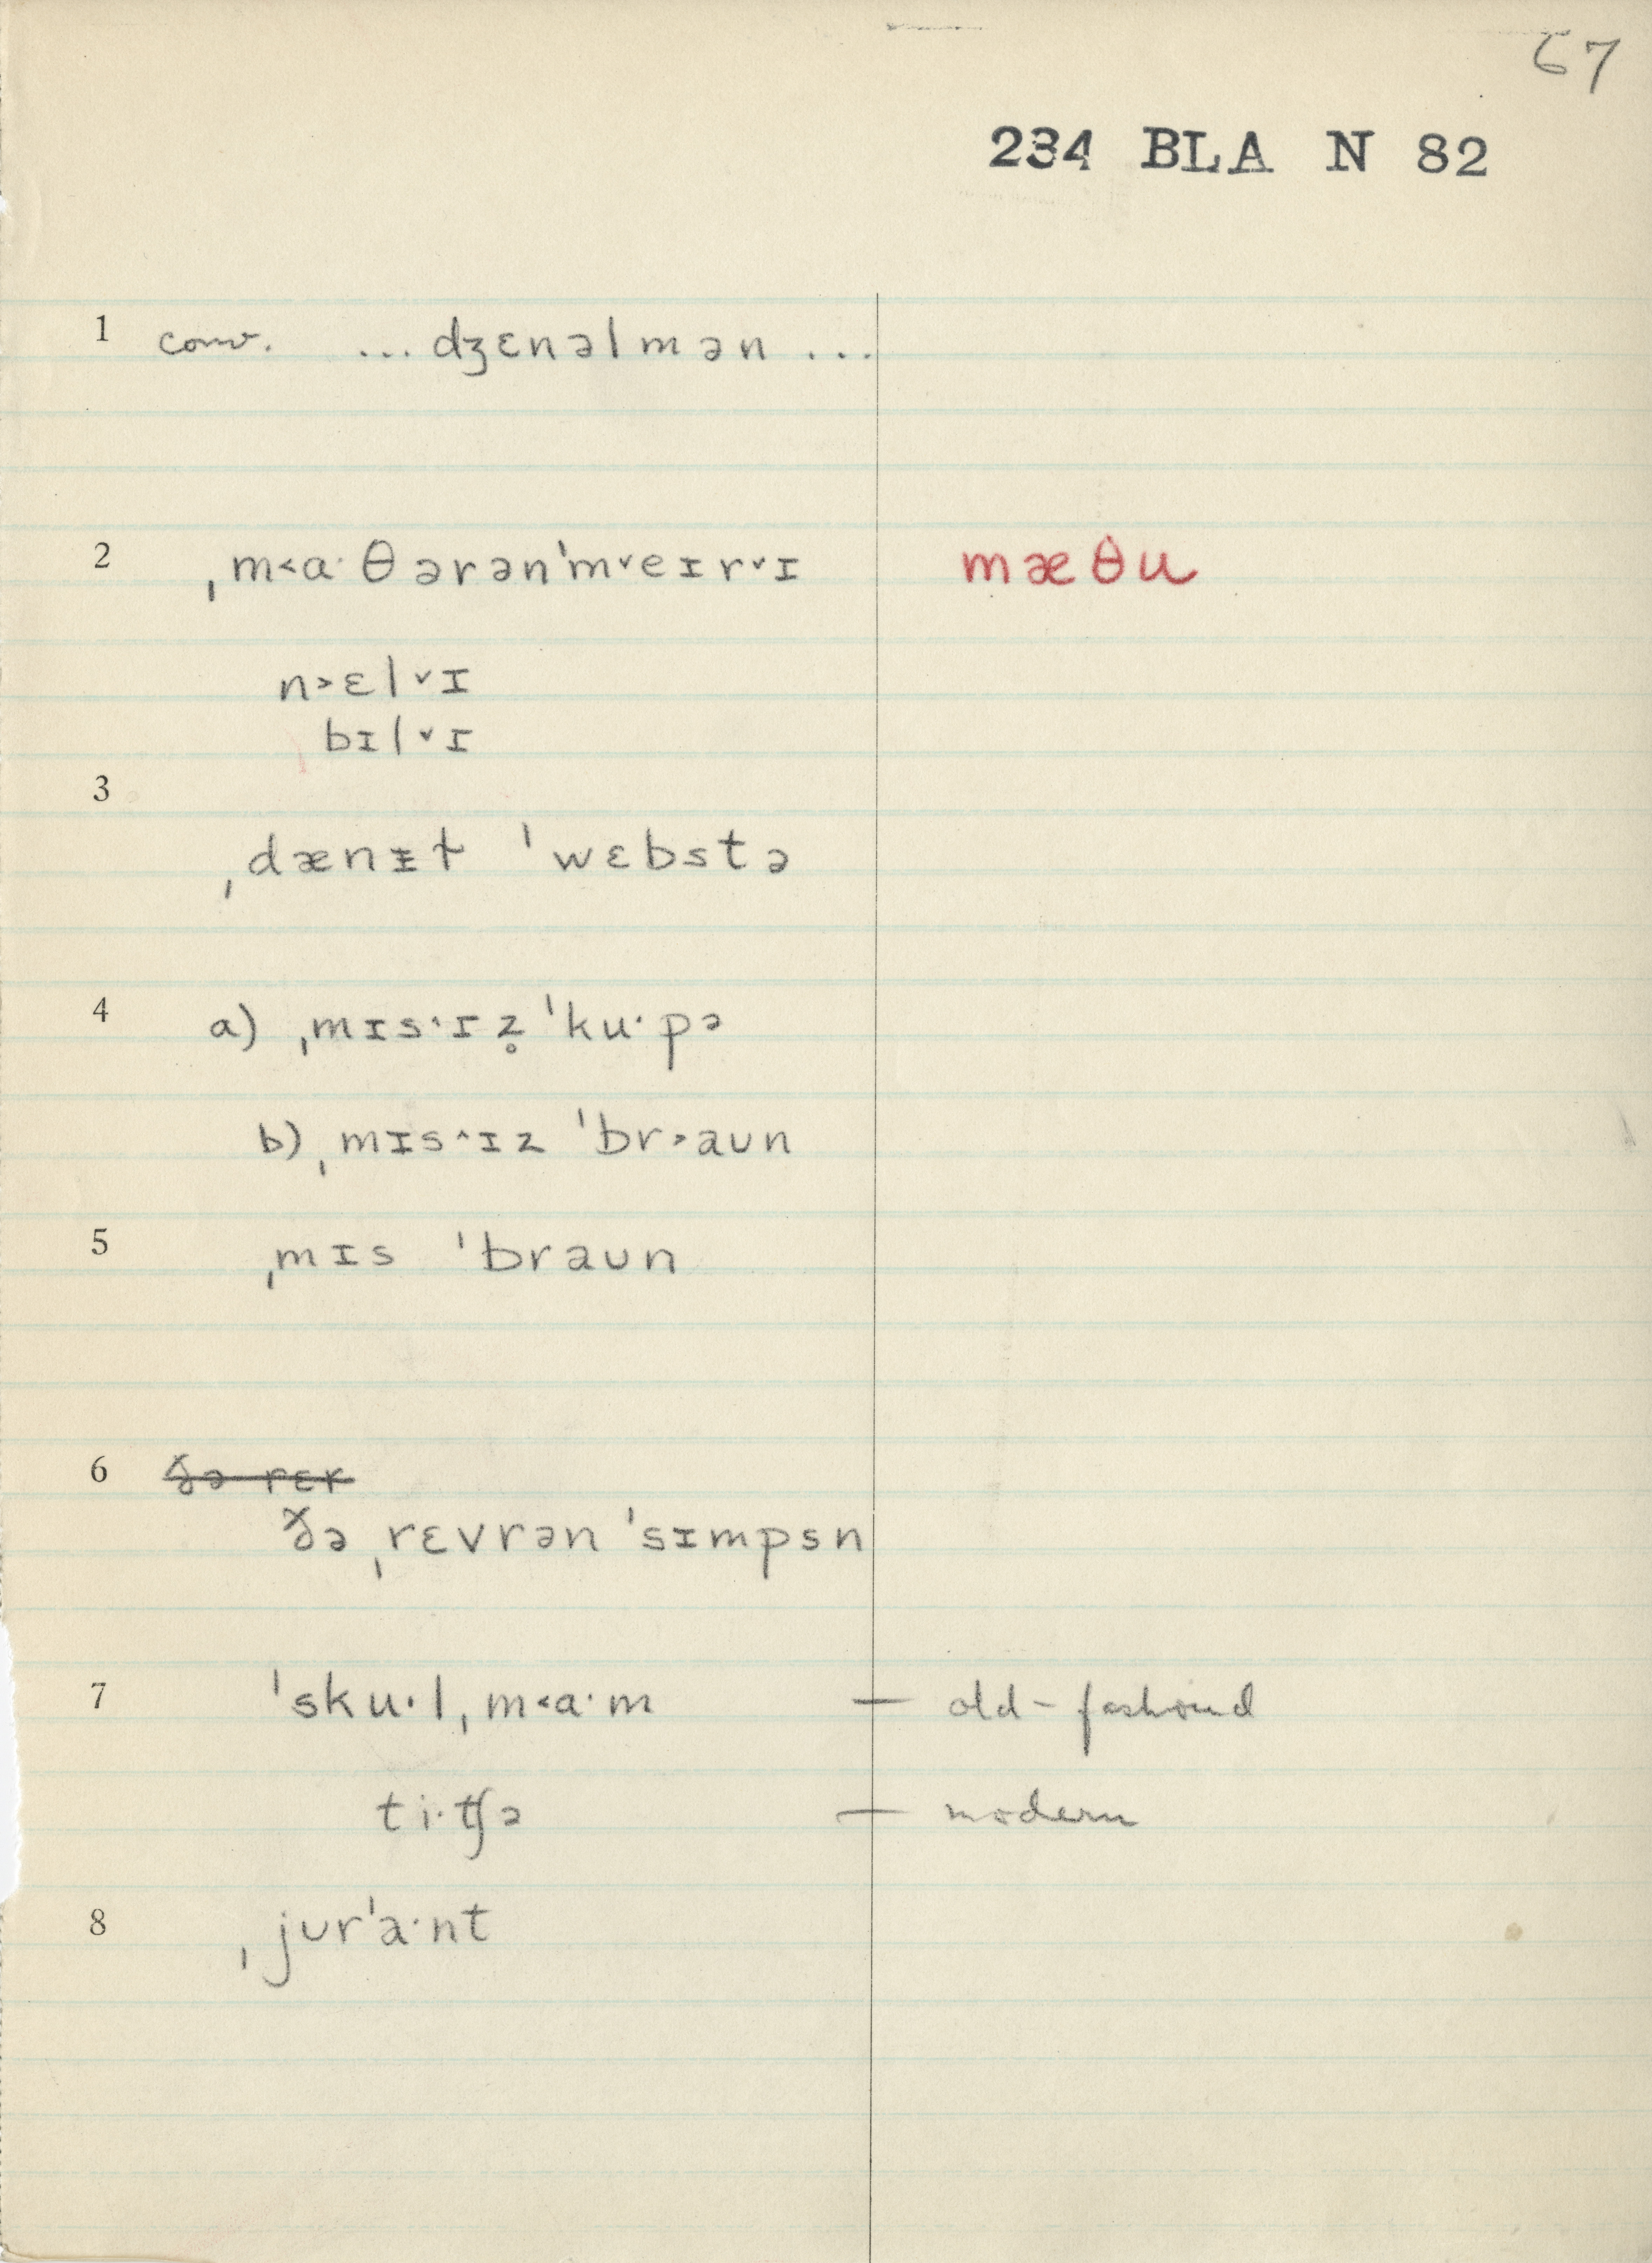 67
234 BLA N 82
1 conv. ... dʒɛnəlmən ...
2 ˌm˂a·θərən'm˅eɪr˅ɪ mæθu
n˃ɛl˅ɪ
bɪl˅ɪ
3
ˌdænᵻɫ 'wɛbstə
4 a) ˌmɪs˄ɪz̥ 'ku·pə
b) ˌmɪs˄ɪz 'br˃aʊn
5 ˌmɪs 'braʊn
6 ðə rɛr
ðə ˌrɛvrən 'sɪmpsn
7 'sku·lˌm˂a·m — old-fashioned
ti·tʃə — modern
8 ˌjʊr'a·nt